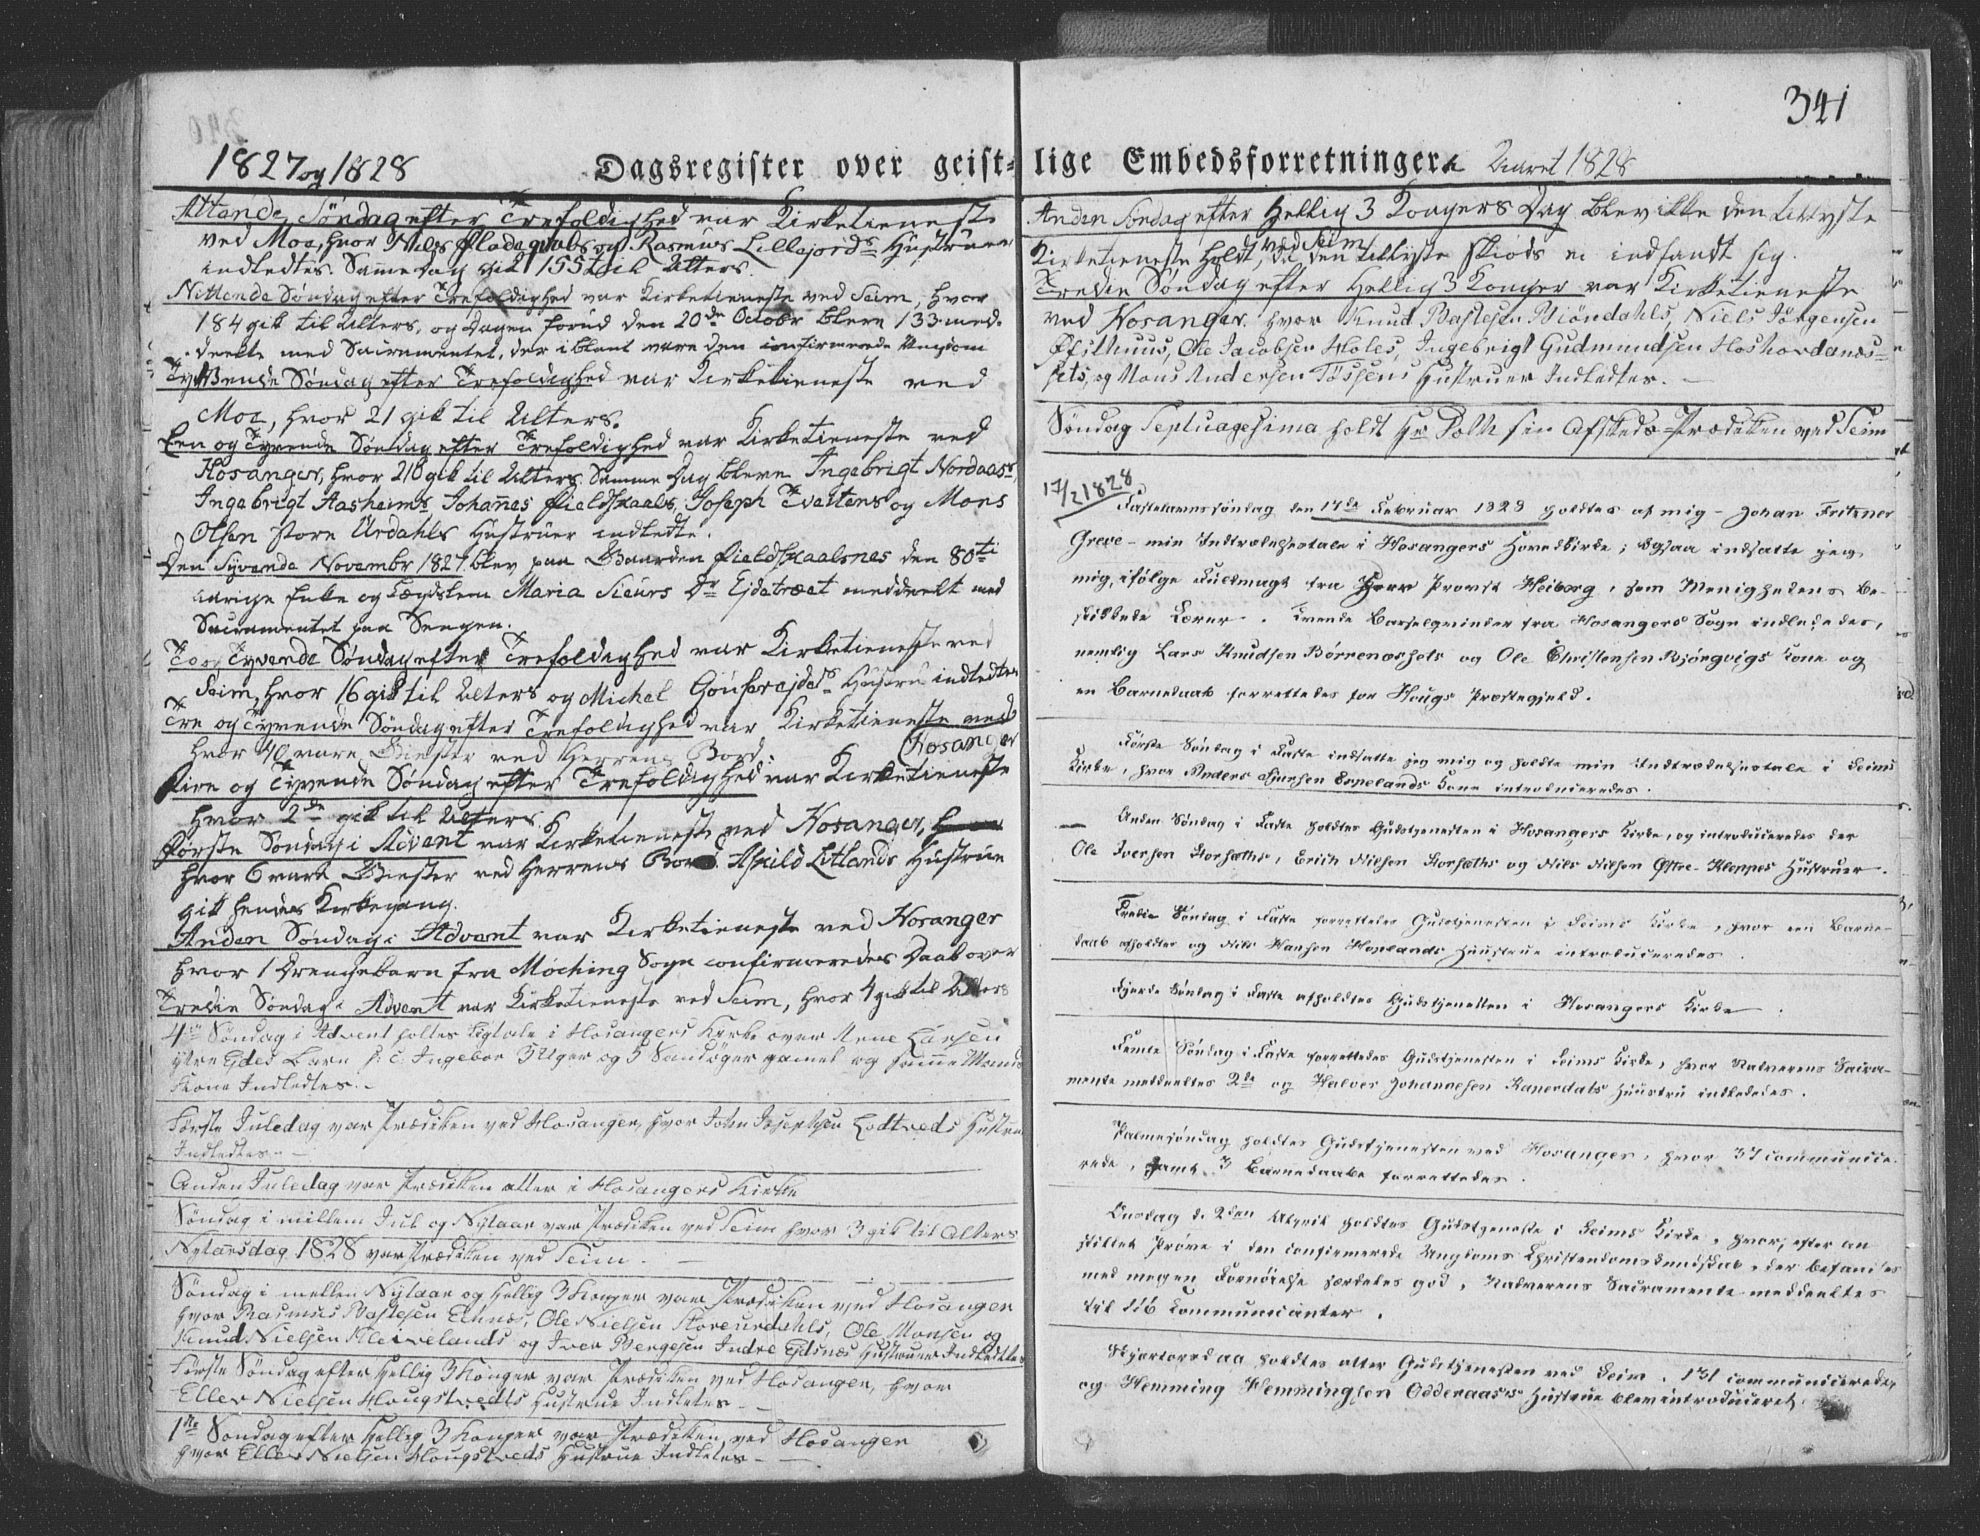 341
1827 og 1828 Dagsregister over geist-
Attende Søndag efter Trefoldighed var Kirketieneste
ved Moe, hvor Niels og Rasmus Lillejords Hustruer
indledtes. Samme Dag gik 155 til Alters.
Nittende Søndag efter Trefoldighed var Kirketieneste ved Seim, hvor
184 gik til Alters, og Dagen forud den 20de Octobr bleve 133 med-
deelte med Sacramentet, der iblant vare den confirmerede Ungdom
Tyvende Søndag efter Trefoldighed var Kirketieneste ved
Moe, hvor 21 gik til Alters.
Een og Tyvende Søndag efter Trefoldighed var Kirketieneste ved
Hosanger, hvor 210 gik til Alters. Samme Dag bleve Ingebrigt Nordaas,
Ingebrigt Aasheims, Johannes Fieldskaals, Joseph Tveitens og Mons
Olsen Store Urdahls Hustruer indledte.
Den Syvende Novembr 1827 blev paa Gaarden Fieldskaalsnes den 80ti
aarige Enke og Lægdslem Maria Sieurs Dr Ejdetræet meddeelt med
Sacramentet paa Sengen.
To og Tyvende Søndag efter Trefoldighed var Kirketieneste ved
Seim, hvor 16 gik til Alters og Michel Hustru indledtes
Tre og Tyvende Søndag efter Trefoldighed var Kirketieneste ved
Hosanger
hvor 40 vare Giester ved Herrens Bord.
Fire og Tyvende Søndag efter Trefoldighed var Kirketieneste
hvor 2de gik til Alters.
Første Søndag i Advent var Kirketieneste ved Hosanger,
hvor 6 vare Giester ved Herrens Bord. Askild Lotlands Hustrue
gik hendes Kirkegang.
Anden Søndag i Advent var Kirketieneste ved Hosanger
hvor 1 Drengebarn fra Møching Sogn confirmeredes Daab over
Tredie Søndag i Advent var Kirketieneste ved Seim, hvor 4 gik til Alters
4de Søndag i Advent holtes Ligtale i Hosangers Kirke over Arne Larsen
ytre Eides Barn h: c: Ingebor 3 Uger og 5 gamel og samme Mands
Kone Indledtes.
Første Juledag var Prædiken ved Hosanger, hvor John Josephsen Lodtveds Hustrue
Indledtes
Anden Juledag var Prædiken atter i Hosangers Kirke
Søndag i millem Jul og Nytaar var Prædiken ved Seim hvor 3 gik til Alters
Nytaarsdag 1828 var Prædiken ved Seim.
Søndag i mellen Nytaar og Hellig 3 Konger var Prædiken ved Hosanger
hvor Rasmus Bastesen Eknæs, Ole Nielsen Storeurdahls, Ole Monsen og
Knud Nielsen Kleivelands og Iver Bergesen Indre Eidsnæs Hustruer Indledtes
Første Søndag efter Hellig 3 Konger var Prædiken ved Hosanger, hvor
Eller Nielsen Hougstvedts Hustrue Indledtes
1ste Søndag efter Hellig 3 Konger var Prædiken ved Hosanger
hvor Eller Nielsen Hougstveds Hustrue Indledtes
lige Embedsforretninger. Aaret 1828
Anden Søndag efter Hellig 3 Kongers Dag blev ikke den tillyste
ved Seim
Kirketieneste holdt, da den tillyste Skiøds ei indfandt sig.
Tredie Søndag efter Hellig 3 Konger var Kirketieneste
ved Hosanger hvor Knud Bastesen Biöndahls, Niels Jörgensen
Ole Jacobsen Holes, Ingebrigt Gudmundsen Hoshovdanes-
sets, og Mons Andersen Tössens Hustruer Indledtes.
Søndag Septuagesima holdt Hr Volk sin Afskeds-Prædiken ved Seim
17/2 1828
Fastelavnssöndag den 17de Februar 1828 holdtes af mig - Johan Fritzner
Greve - min Indtrædelsestale i Hosangers Hovedkirke; ogsaa indsatte jeg
mig, ifölge Fuldmagt fra Herr Provst Heiberg, som Menighedens be-
skikkede Lærer. Tvende Barselqvinder fra Hosangers Sogn indlededes,
nemlig Lars Knudsen Börrenæssets og Ole Christensen Björgvigs Kone og
en Barnedaab forrettedes for Hougs Præstegjeld.
Förste Söndag i Faste indsatte jeg mig og holdte min Indtrædelsestale i Seims
Kirke, hvor Anders Espelands Kone introduceredes.
Anden Söndag i Faste holdtes Gudstjenesten i Hosangers Kirke, og introduceredes der
Ole Iversen Storsæths, Erich Nilsen Storsæths og Nils Nilsen Östre-Kleppes Hustruer.
Tredie Söndag i Faste forrettedes Gudstjenesten i Seims Kirke, hvor een Barne-
daab afholdtes og Nils Hansen Hoplands Huustrue introduceredes.
Fjerde Söndag i Faste afholdtes Gudstjenesten i Hosangers Kirke
Femte Söndag i Faste forrettedes Gudstjenesten i Seims Kirke, hvor Nadverens Sacra-
mente meddeeltes 2de og Halvor Johannesen Huustru indlededes.
Palmesöndag holdtes Gudstjenesten ved Hosanger, hvor 37 communice-
rede, samt 3 Barnedaabe forrettedes.
Onsdag d. 2den April holdtes Gudstjeneste i Seims Kirke, hvor, efter an
stillet Pröve i den confirmerede Ungdoms Christendomskundskab, der befandtes
med megen Fornöielse særdeles god, Nadverens Sacramente meddeeltes
til 116 Communicanter.
Skjærtorsdag holdtes atter Gudstjenesten ved Seim. 131 communicerede,
og Hemming Hemmingsen Odderaas's Hustrue blev introduceret.